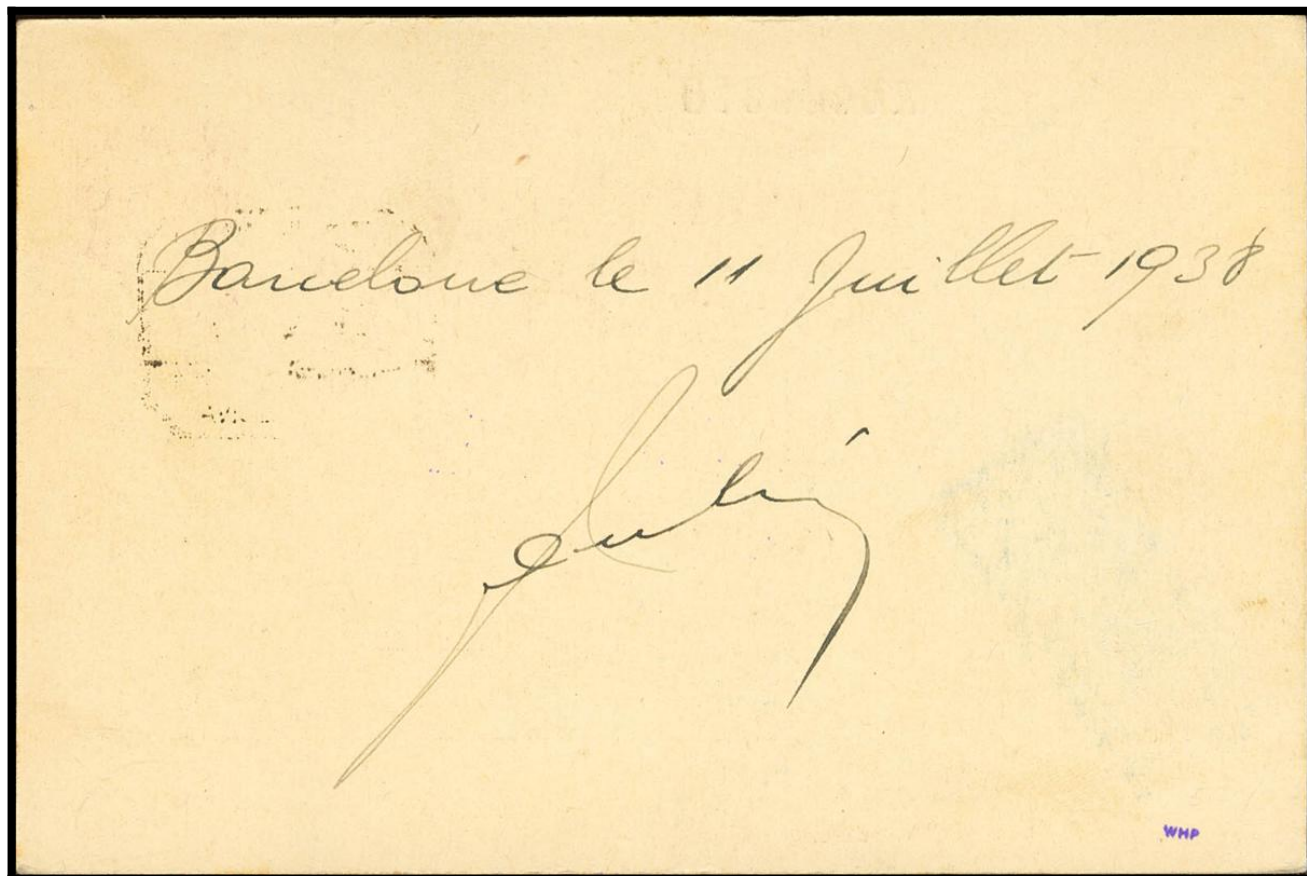 Barcelone le 11 Juillet 1938
WHP